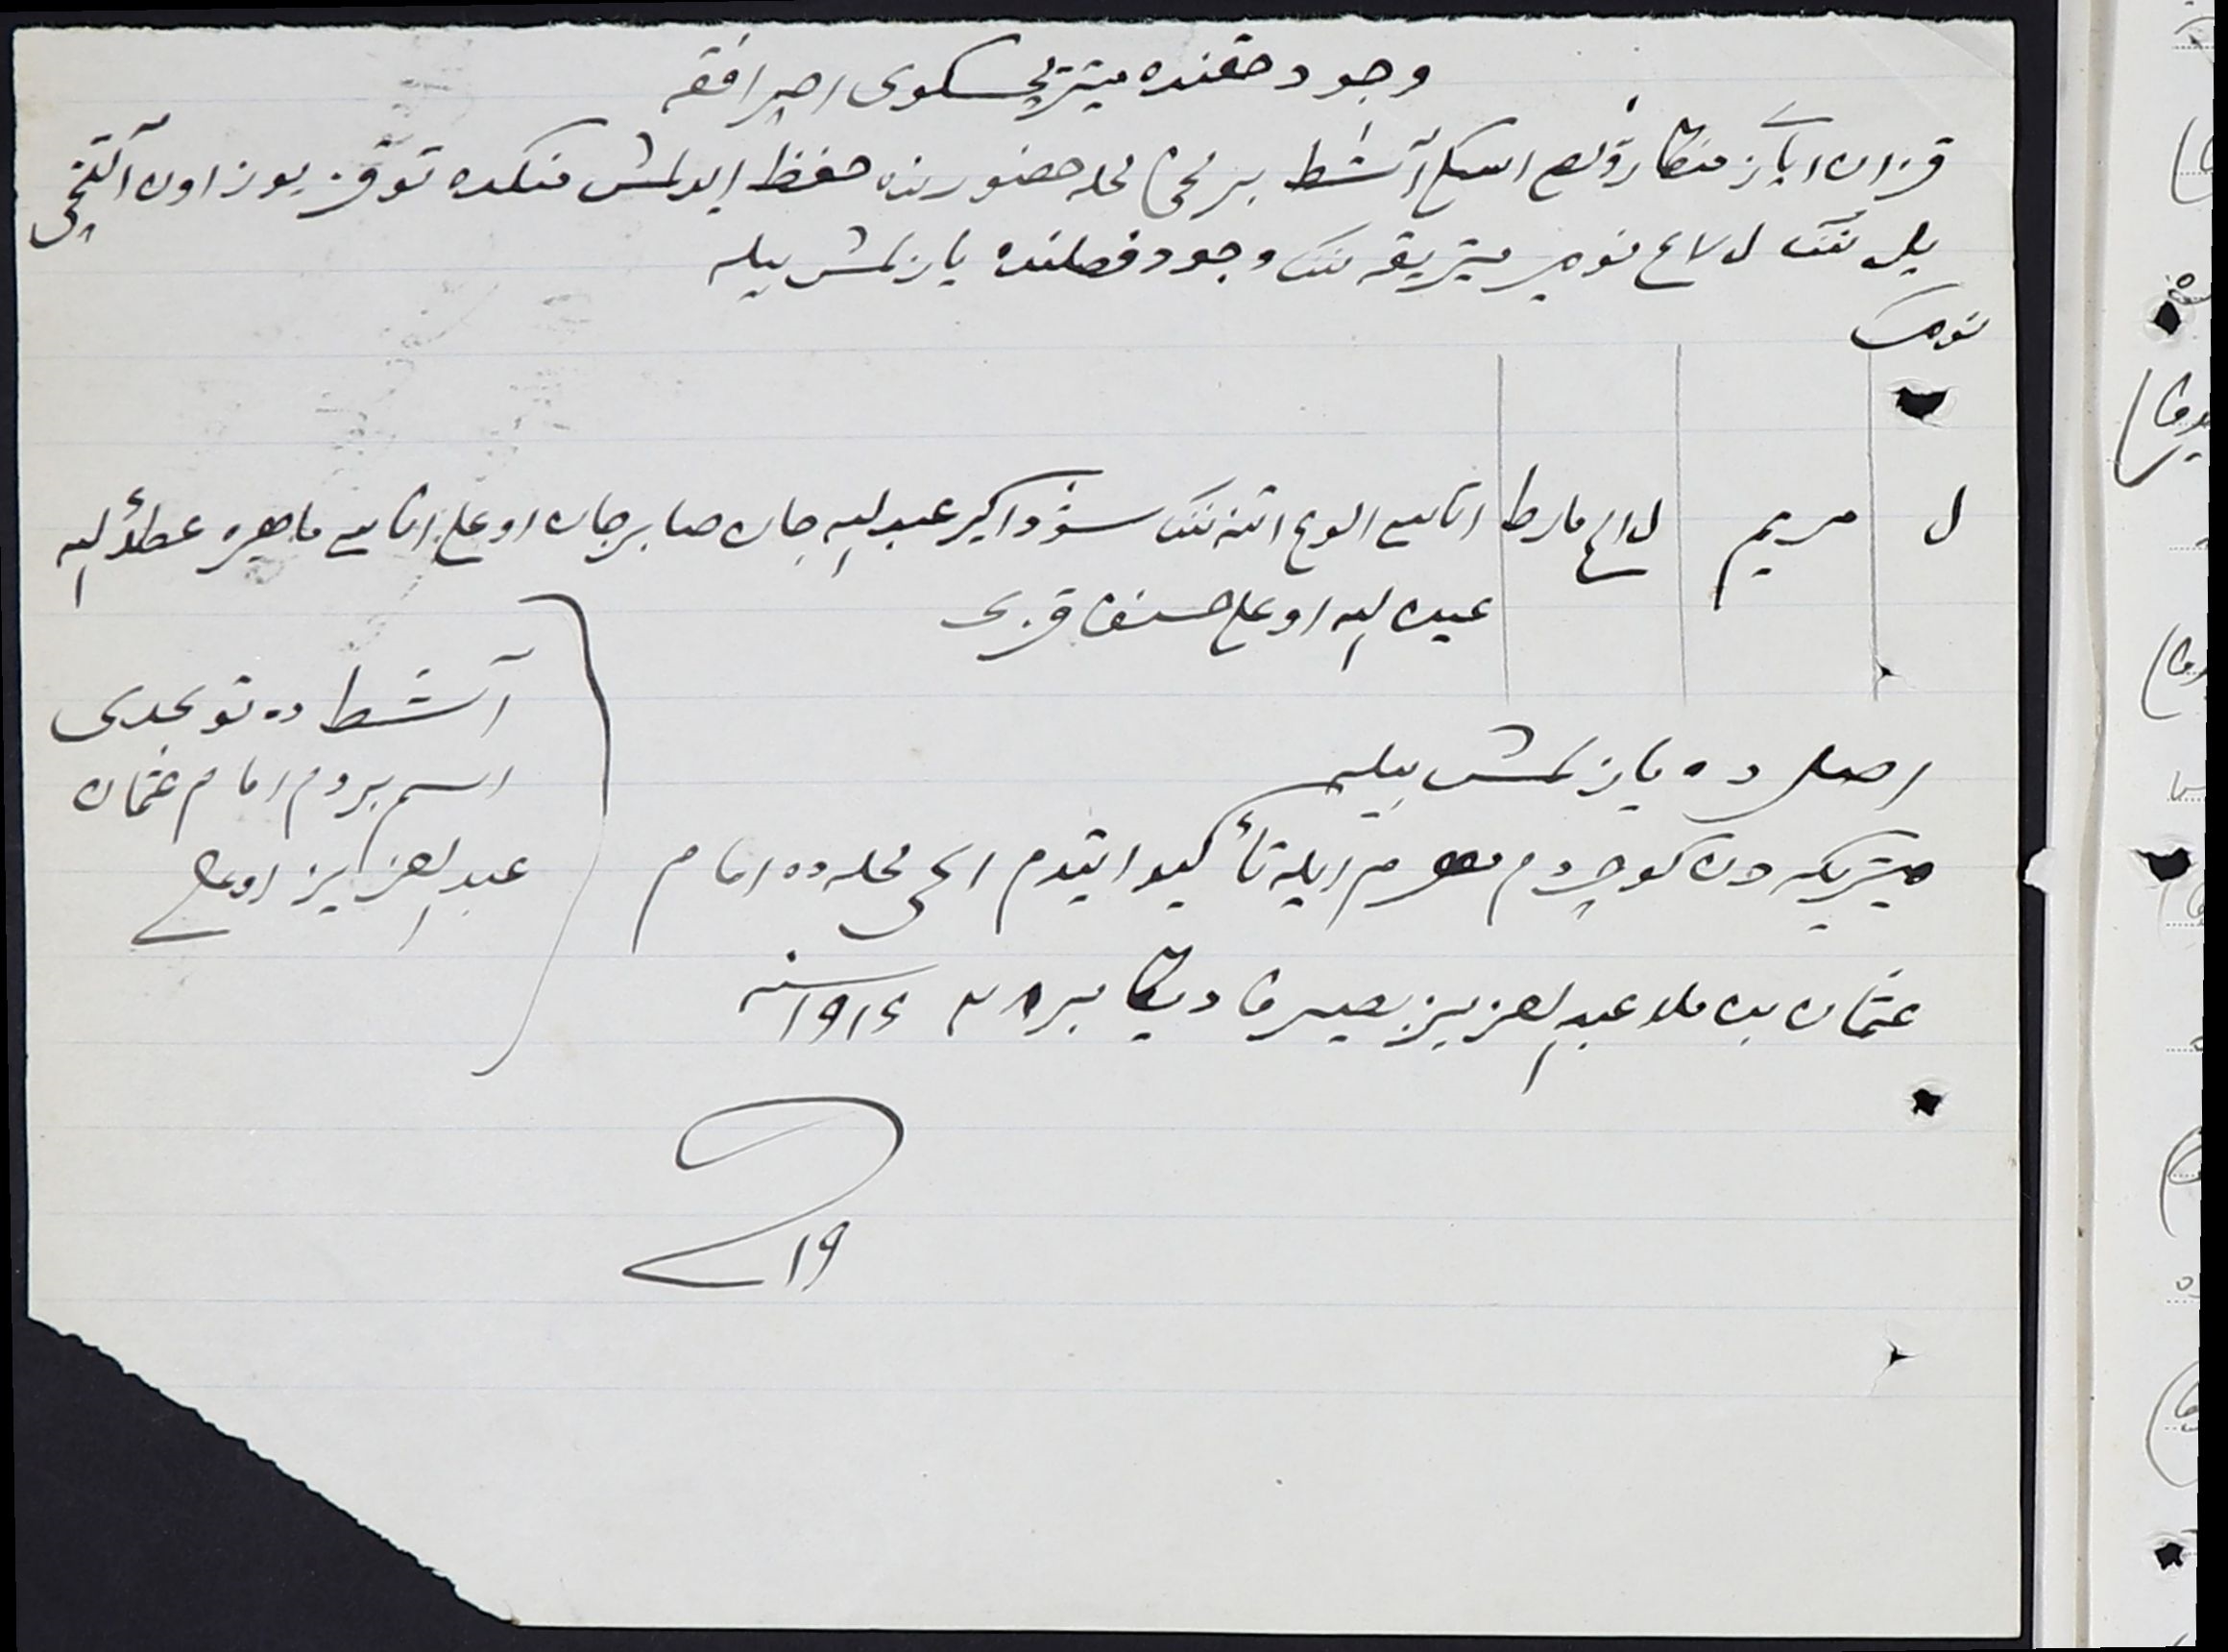 وجود حقنده میتریچسکوی اسپرافقه
قزان اویاز منکار ولص ایسکی آشط برنجی محله حضورنده حفظ ایدلمش منکده توقز یوز اون آلتنچی
یل ننك نومیر میتریقه ننك وجود فصلنده یازلمش بیله
نومیر
مریم مارط اتاسی الوغ اتنه ننك سوداکیر عبدالله جان صابرجان اوغلی اناسی ماهره عطاءالله
عبیدالله اوغلی حسنف قزی
اصلده یازلمش بیله
میتریکه دن کوچردم مهرم ایله تأکید ایتدم اکی محله ده امام
عثمان بن ملا عبدالعزیز دیکابیر ۱۹۱۶ سنه
آشط ده توغدی
اسم بردم امام عثمان
عبدالعزیز اوغلی
۱۹